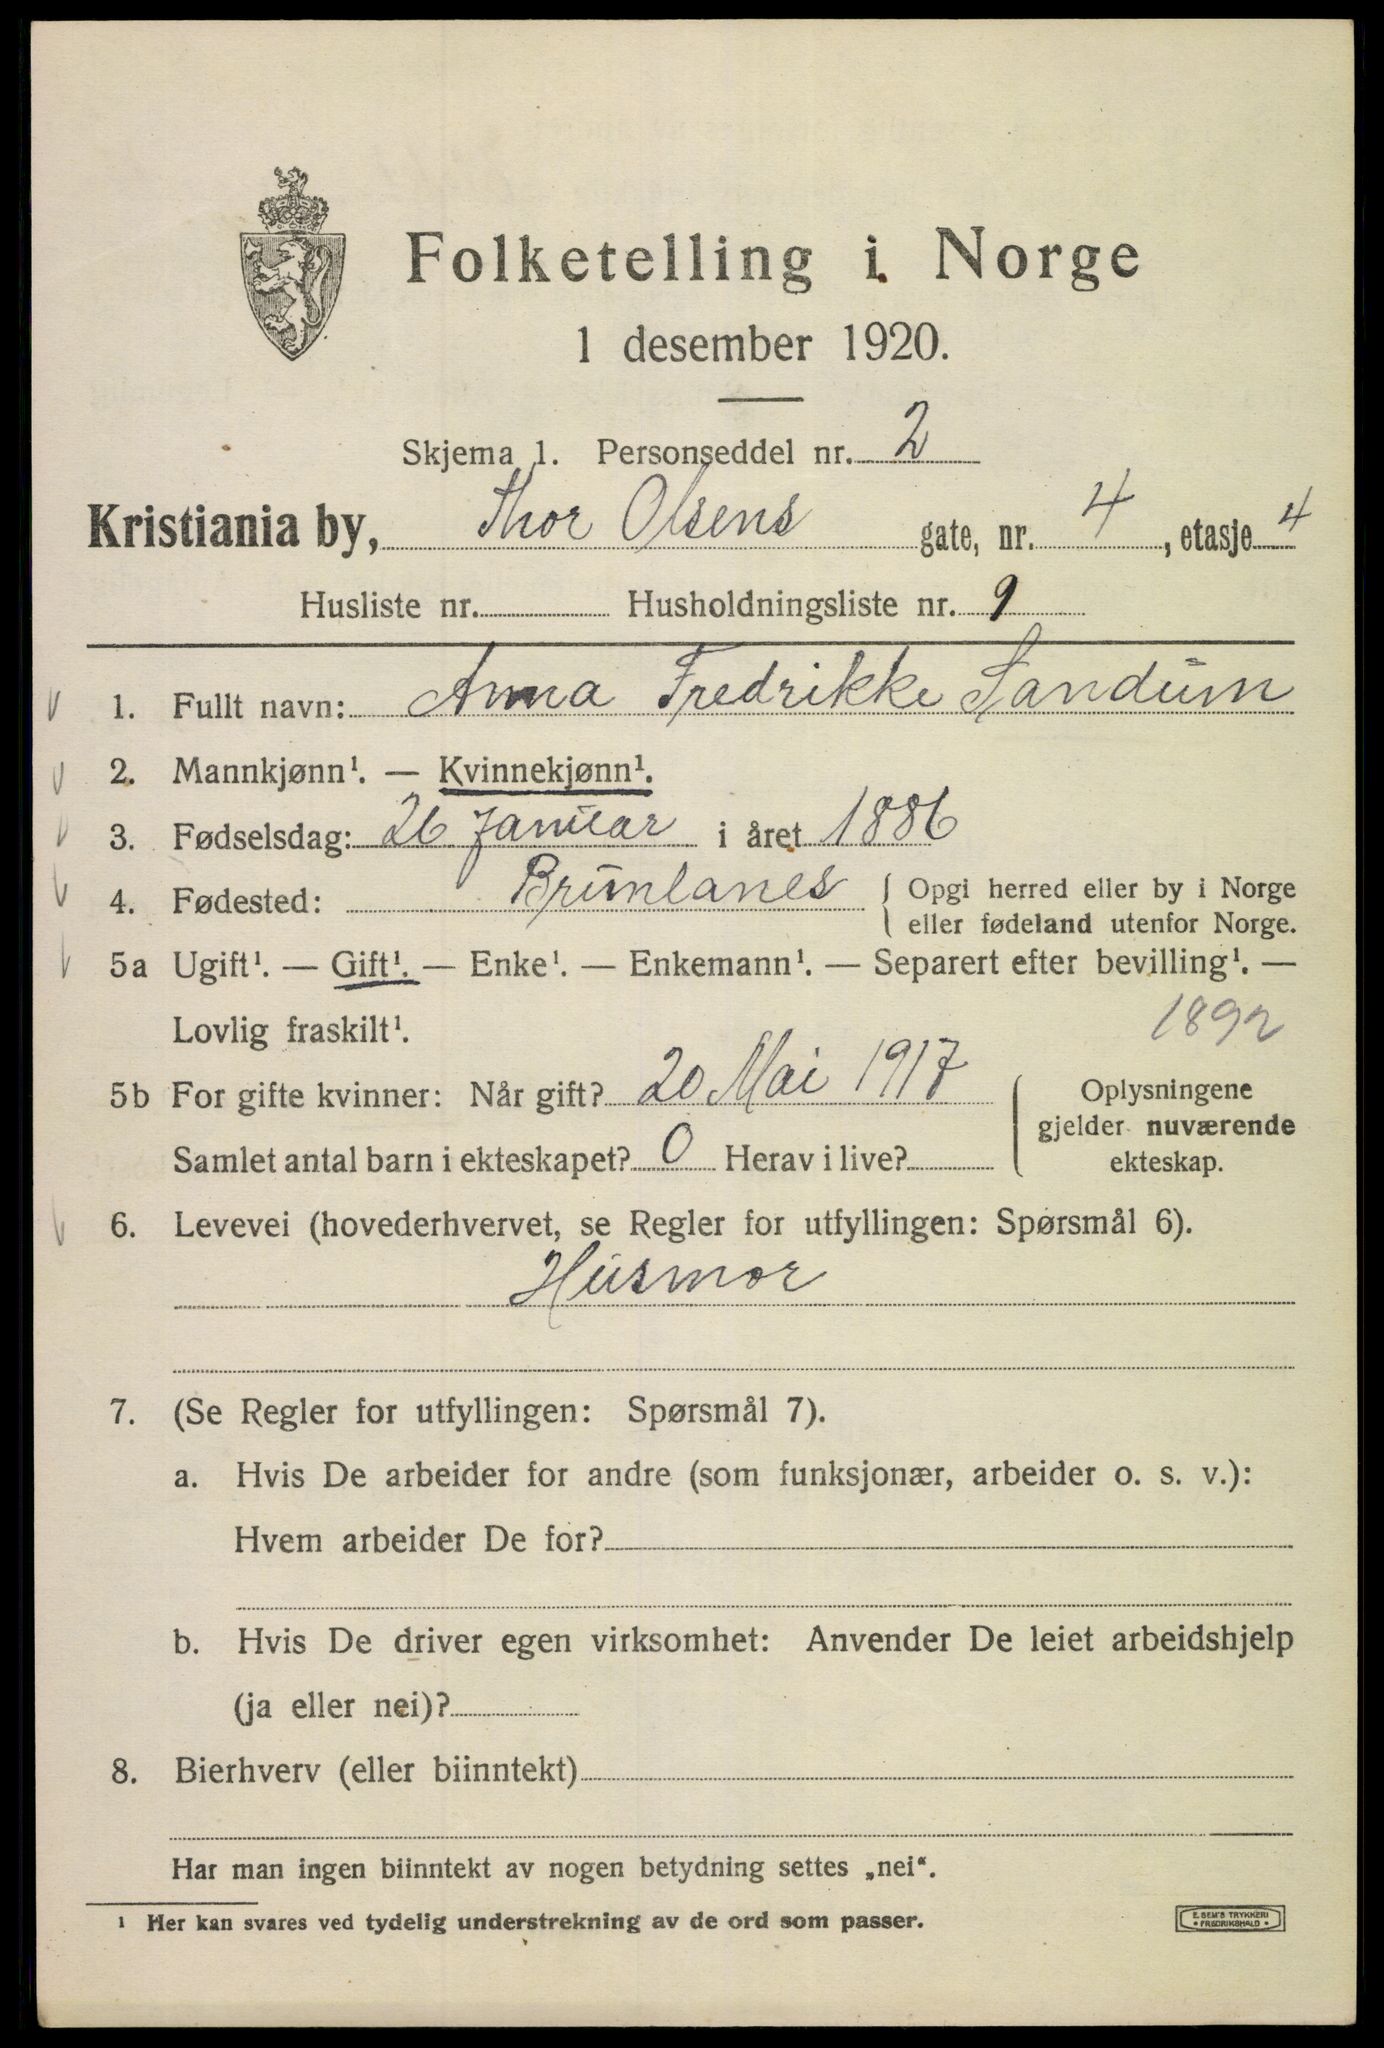 Folketelling i Norge
1 desember 1920.
Skjema 1. Personseddel nr. 2
Kristiania by, Thor Olsens gate, nr. 4, etasje 4
Husliste nr. Husholdningsliste nr. 9
1. Fullt navn: Anna Fredrikke Sandum
2. Mannkjønn¹. — Kvinnekjønn¹.
3. Fødselsdag: 26 Januar i året 1886
4. Fødested: Brunlanes { Opgi herred eller by i Norge
eller fødeland utenfor Norge.
5a Ugift¹. — Gift¹. — Enke¹. — Enkemann¹. — Separert efter bevilling¹. —
Lovlig fraskilt¹. 1892
5b For gifte kvinner: Når gift? 20 Mai 1917
Samlet antal barn i ekteskapet? 0 Herav i live?
Oplysningene
gjelder nuværende
ekteskap.
6. Levevei (hovederhvervet, se Regler for utfyllingen: Spørsmål 6).
Husmor
7. (Se Regler for utfyllingen: Spørsmål 7).
a. Hvis De arbeider for andre (som funksjonær, arbeider o. s. v.):
Hvem arbeider De for?
b. Hvis De driver egen virksomhet: Anvender De leiet arbeidshjelp
(ja eller nei)?
8. Bierhverv (eller biinntekt)
Har man ingen biinntekt av nogen betydning settes „nei“.
¹ Her kan svares ved tydelig understrekning av de ord som passer.
E. SEM'S TRYKKERI
• FREDRIKSHALD •